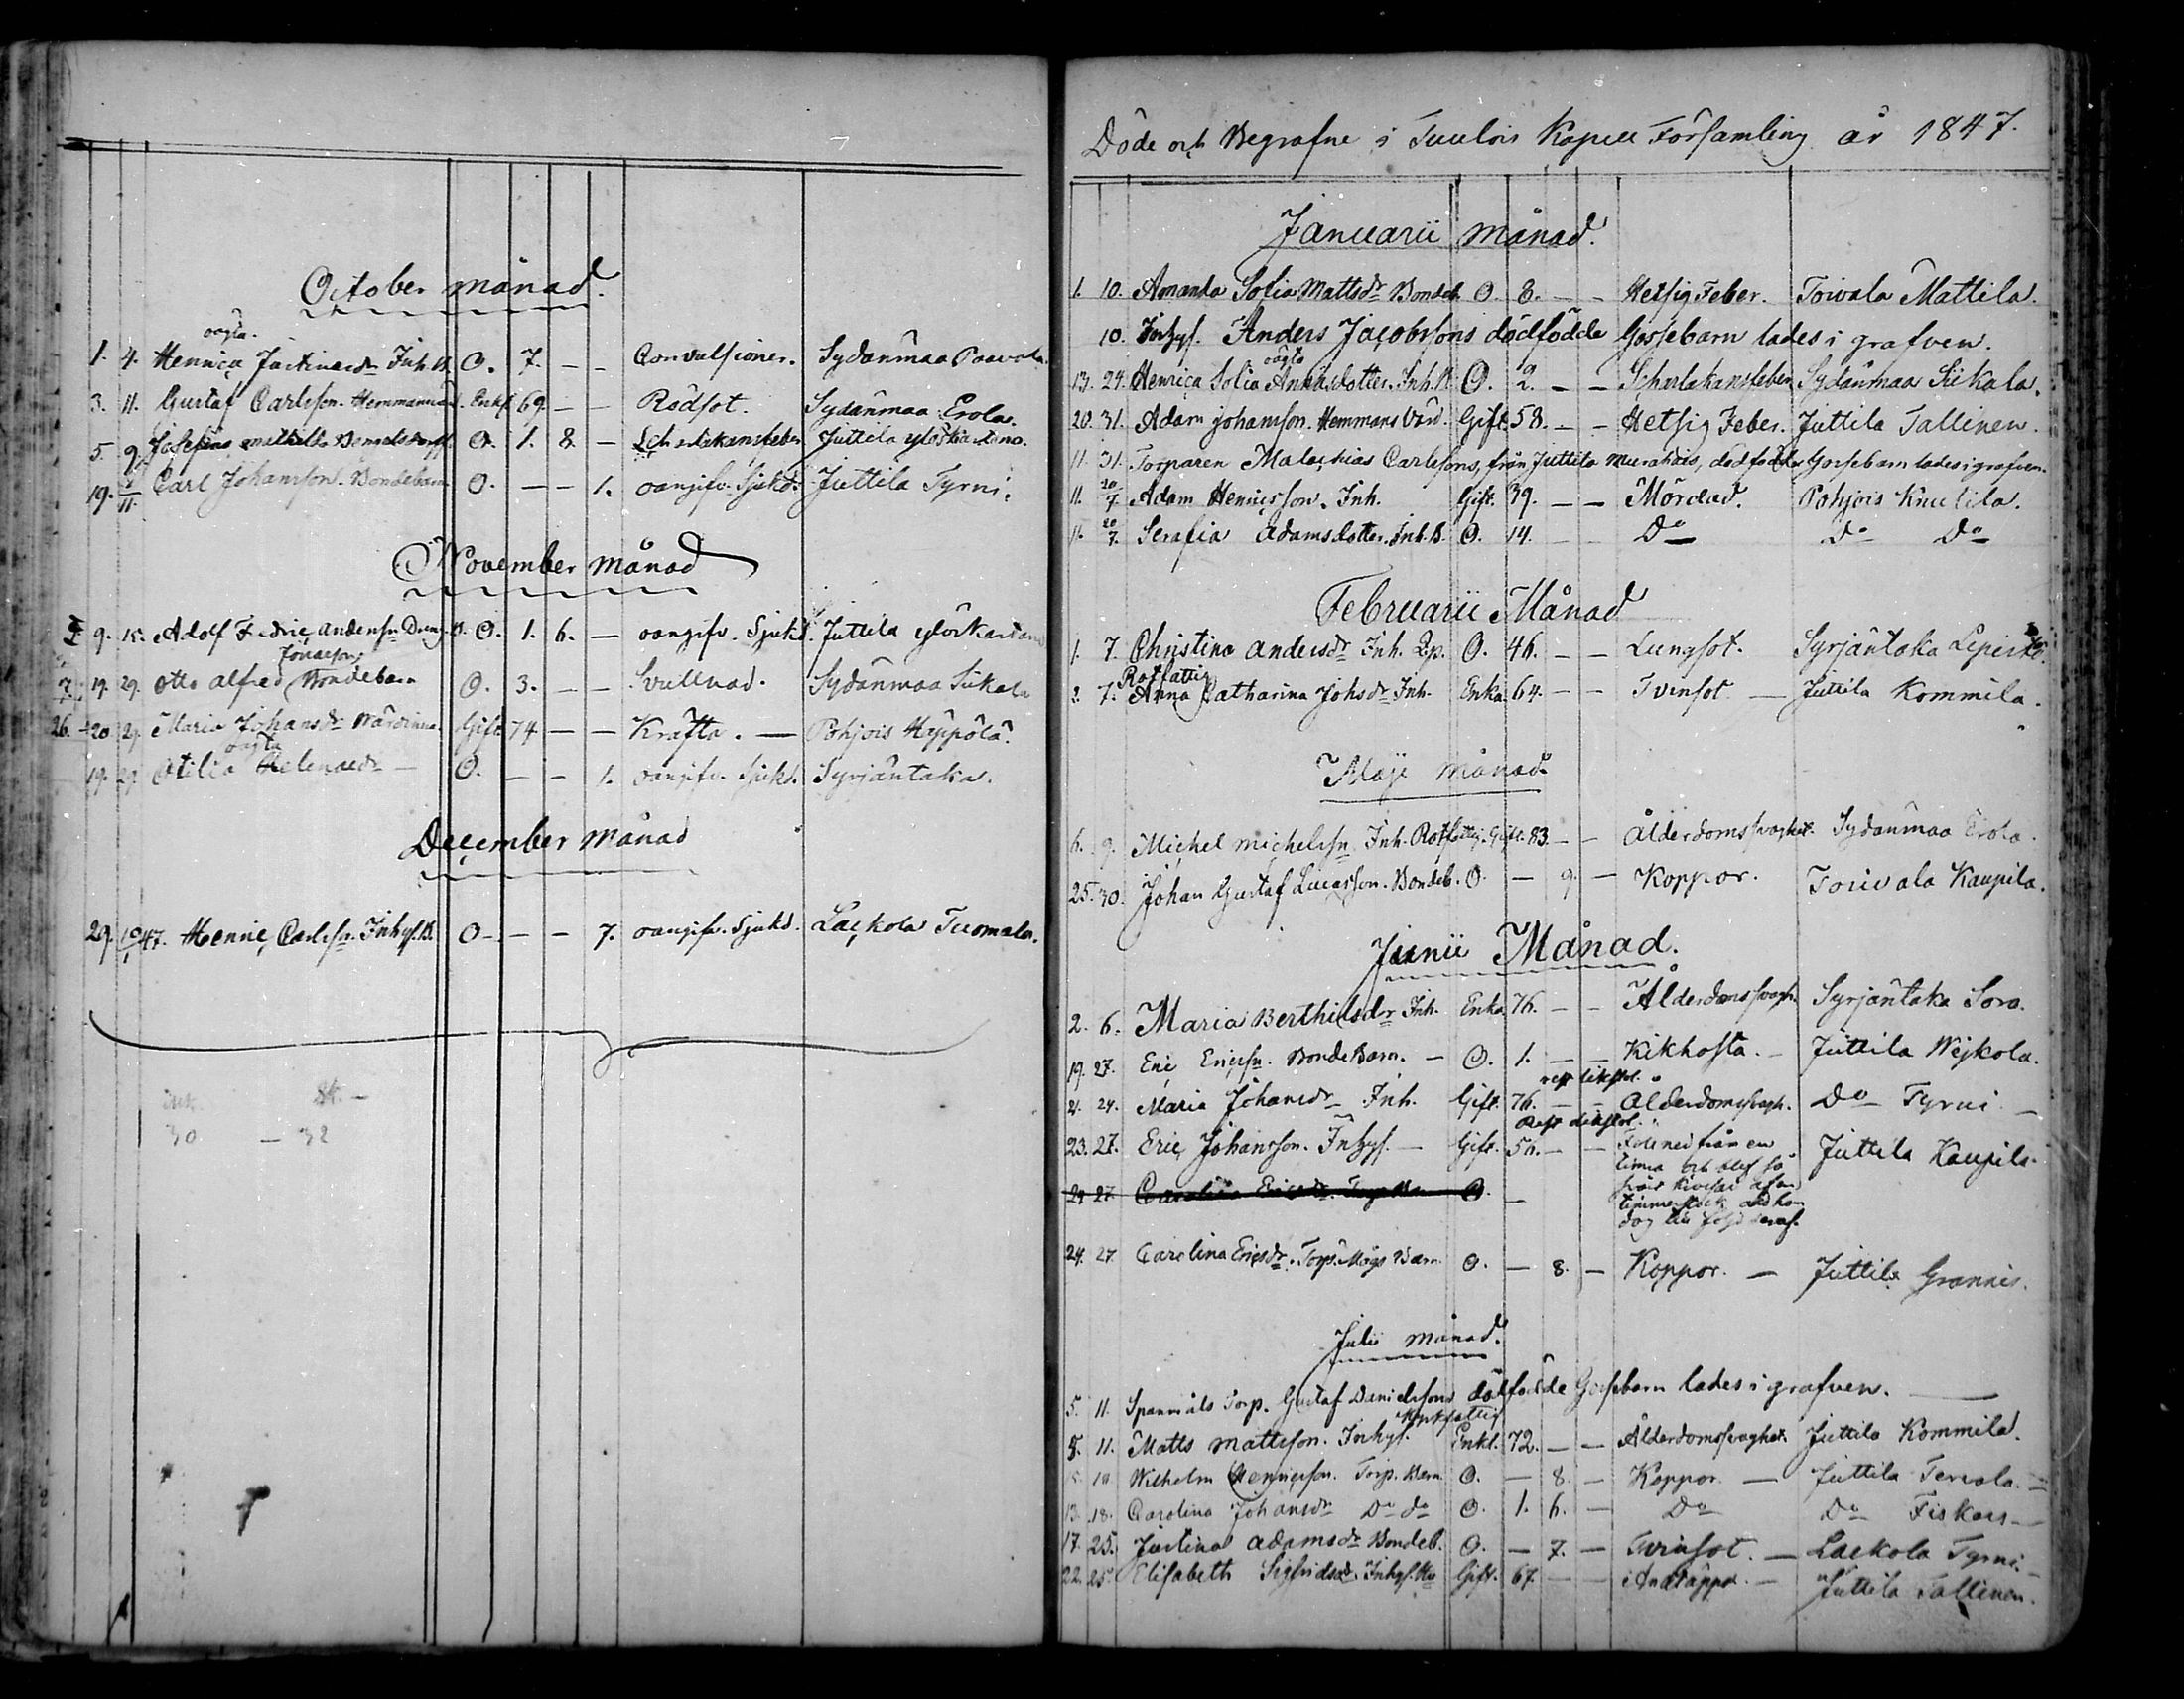 October månad.
oägta.
1. 4. Henrica Justinaedr Inh. B. O. 7. — — Convulsioner. Sydänmaa Paavola
3. 11. Gustaf Carlsson. Hemmansv. Enkl. 69. — — Rödsot. Sydänmaa Erola.
5. 9. Josefina Mathilda O. 1. 8. — Scharlakansfeber Juttila
19. 1/11. Carl Johansson. Bondebarn. O. — — 1. oangifv. Sjukd. Juttila Tyrni.
November månad
9. 15. Adolf Fredric Andersn O. 1. 6. — oangifv. Sjukd. Juttila
Jonasson
7 19. 29. Otto Alfred Bondebarn O. 3. — — Svullnad. Sydänmaa Siikala
26. 20 29. Maria Johansdr Värdinna. Gift 74 — — Kräfta. — Pohjois Häppölä.
oägta
19. 29. Otilia Helenaedr — O. — — 1. oangifv. Sjukd. Syrjäntaka.
December månad
29. 10/1 47. Henric Carlssn. Inhys. B. O — — — 7. oangifv. Sjukd. Lackola Tuomala.
30 — 32
Döde och Begrafne i Tuulois Kapell Församling år 1847.
Januarii månad.
1. 10. Amanda Sofia Mattsdr Bondeb. O. 8. — — Hetsig Feber. Toivala Mattila.
10. Inhys. Anders Jacobssons dödfödde Gossebarn lades i grafven.
oägta
13. 24. Henrica Sofia Annasdotter. Inh. B. O. — — Scharlakansfeber Sydänmaa Siikala.
20. 31. Adam Johansson. Hemmans Värd. Gift. 58. — — Hetsig Feber. Juttila Tallinen.
11. 31. Torparen Malachias Carlssons, från Juttila dödfödda Gossebarn lades i grafven.
11. 20/7. Adam Henricsson. Inh. Gift. 39. — — Mördad. Pohjois Knuttila.
11. 20/7. Serafia Adamsdotter. Inh. B. O. 14. — — Do Do Do
Februarii Månad
1. 7. Christina Andersdr Inh. O. 46. — — Lungsot. Syrjäntaka
Rotfattig
2. 7. Anna Catharina Johsdr Inh. Enka 64. — — Tvinsot. — Juttila Kommila.
Maji månad.
6. 9. Michel Michelssn Inh. Rotfattig. Gift. 83. — — Ålderdomssvaghet. Sydänmaa Erola.
25. 30. Johan Gustaf Lucasson. Bondeb. O. — 9. — Koppor. Toivala Kaupila.
Junii Månad.
2. 6. Maria Berthilsdr Inh. Enka 76. — — Ålderdomssvagh. Syrjäntaka Soro.
19. 27. Eric Ericssn. Bonde Barn. — O. 1. — — Kikhosta. — Juttila Wejkola.
rest likstol.
21. 24. Maria Johansdr Inh. Gift. 76. — — Ålderdomssvagh. Do Tyrni —
Rest likstol.
23. 27. Eric Johansson. Inhys. — Gift. 56. — — Föll ned från en Juttila Kaupila.
24 27. Carolina Ericsdr O. —
24. 27. Carolina Ericsdr. Torp. Mågs Barn. O. — 8. — Koppor. — Juttila Grannis.
Julii månad.
5. 11. Spanmåls Torp. Gustaf Danielssons dödfödde Gossebarn lades i grafven. —
Kyrkfattig
8. 11. Matts Mattsson. Inhys. Enkl. 72. — — Ålderdomssvaghet. Juttila Kommila.
Wilhelm Henricsson. Torp. Barn O. — 8. — Koppor. — Juttila Tervola. —
13. 18. Carolina Johansdr Do do O. 1. 6. — Do Do Fiskars —
17. 25. Justina Adamsdr Bondeb. O. — 7. — Tvinsot. — Lackola Tyrni. —
22. 25. Elisabeth Sigfridsdr. Inhys. Hu Gift. 67. — — Andtäppa. — Juttila Tallinen.